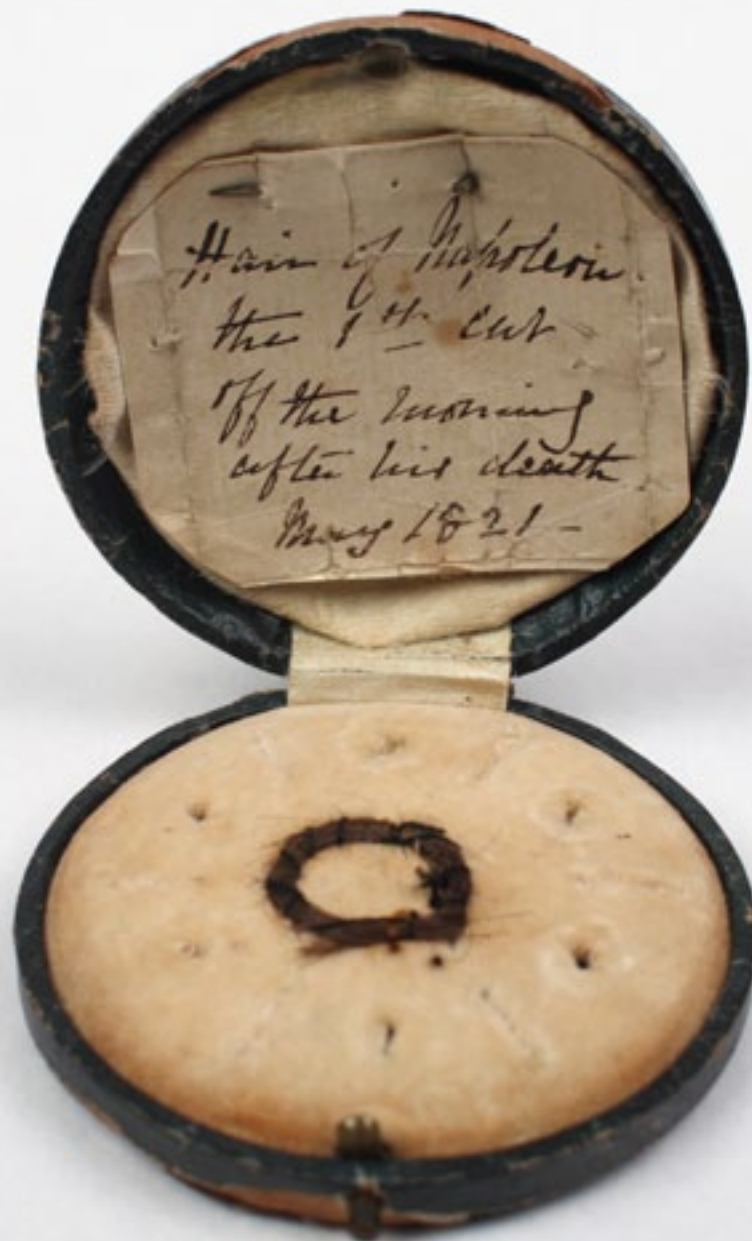 Hair of Napoleon
the 1st cut
off the morning
after his death
May 1821 –